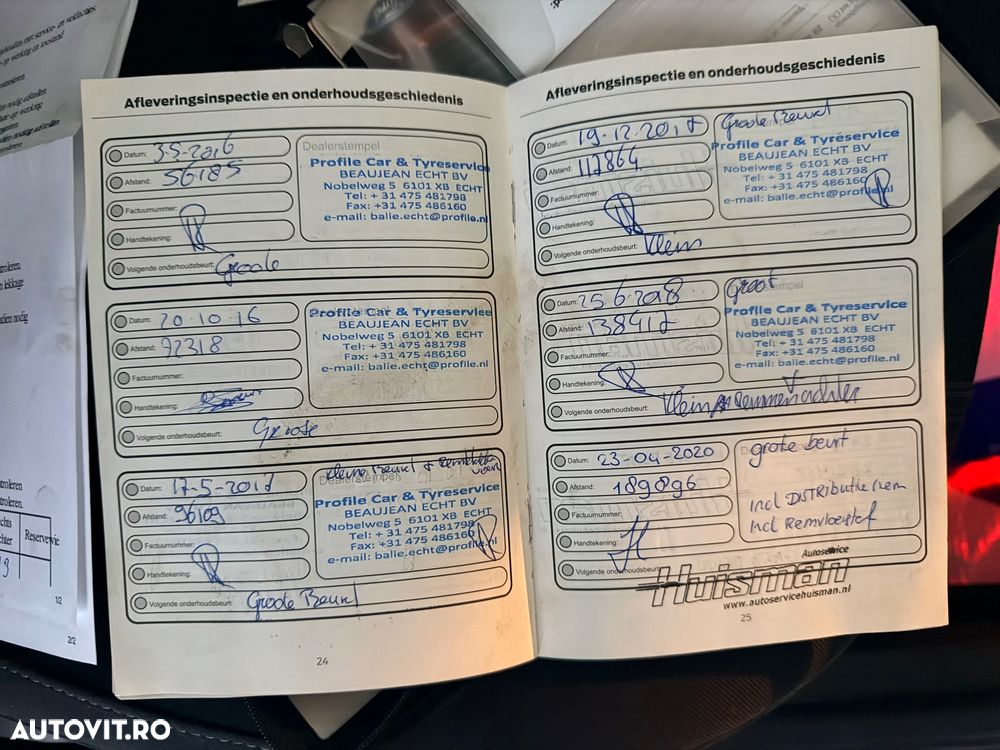 Afleveringsinspectie en onderhoudsgeschiedenis
Datum: 3-5-2016
Afstand: 56185
Factuurnummer:
Handtekening:
Volgende onderhoudsbeurt: Groote
Dealerstempel
Profile Car & Tyreservice
BEAUJEAN ECHT BV
Nobelweg 5 6101 XB ECHT
Tel: + 31 475 481798
Fax: +31 475 486160
e-mail: balie.echt@profile.nl
Datum: 20-10-16
Afstand: 72318
Factuurnummer:
Handtekening:
Volgende onderhoudsbeurt: Groote
Profile Car & Tyreservice
BEAUJEAN ECHT BV
Nobelweg 5 6101 XB ECHT
Tel: + 31 475 481798
Fax: +31 475 486160
e-mail: balie.echt@profile.nl
Datum: 17-5-2017
Afstand: 96109
Factuurnummer:
Handtekening:
Volgende onderhoudsbeurt: Groote Beurt
Kleine Beurt +
Dealerstempel
Profile Car & Tyreservice
BEAUJEAN ECHT BV
Nobelweg 5 6101 XB ECHT
Tel: + 31 475 481798
Fax: +31 475 486160
e-mail: balie.echt@profile.nl
24
Afleveringsinspectie en onderhoudsgeschiedenis
Datum: 19-12-2017
Afstand: 117864
Factuurnummer:
Handtekening:
Volgende onderhoudsbeurt: Klein
Groote Beurt
Profile Car & Tyreservice
BEAUJEAN ECHT BV
Nobelweg 5 6101 XB ECHT
Tel: + 31 475 481798
Fax: +31 475 486160
e-mail: balie.echt@profile.nl
Datum: 25-6-2018
Afstand: 138417
Factuurnummer:
Handtekening:
Volgende onderhoudsbeurt: Klein
Groot
Profile Car & Tyreservice
BEAUJEAN ECHT BV
Nobelweg 5 6101 XB ECHT
Tel: + 31 475 481798
Fax: +31 475 486160
e-mail: balie.echt@profile.nl
Datum: 23-04-2020
Afstand: 189896
Factuurnummer:
Handtekening:
Volgende onderhoudsbeurt:
grote beurt
incl DISTRIBUTIE riem
Incl Remvloeistof
Autoservice
Huisman
www.autoservicehuisman.nl
25
Reserve
1/2
2/2
AUTOVIT.RO